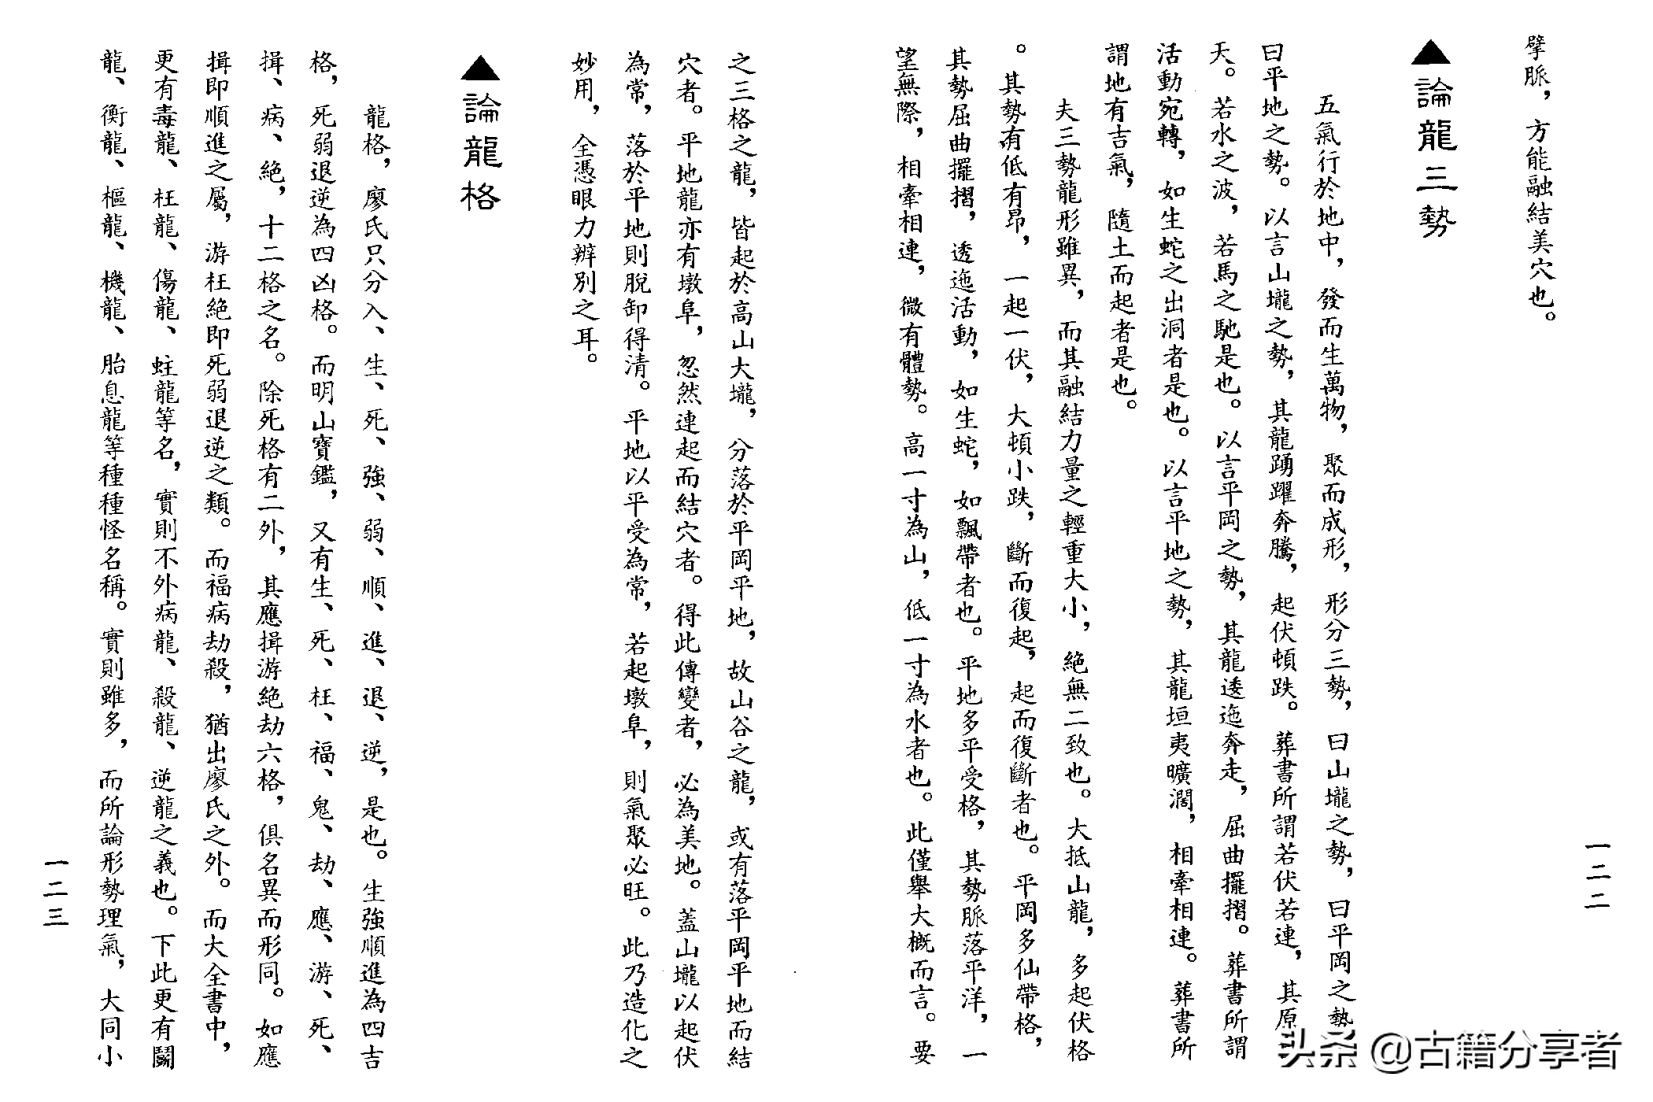 擘脈，方能融結美穴也。
▲論龍三勢
五氣行於地中，發而生萬物，聚而成形，形分三勢，曰山壠之勢，曰平岡之勢
曰平地之勢。以言山壠之勢，其龍踴躍奔騰，起伏頓跌。葬書所謂若伏若連，其原
天。若水之波，若馬之馳是也。以言平岡之勢，其龍逶迤奔走，屈曲擺摺。葬書所謂
活動宛轉，如生蛇之出洞者是也。以言平地之勢，其龍垣夷曠濶，相牽相連。葬書所
謂地有吉氣，隨土而起者是也。
夫三勢龍形雖異，而其融結力量之輕重大小，絕無二致也。大抵山龍，多起伏格
。其勢有低有昂，一起一伏，大頓小跌，斷而復起，起而復斷者也。平岡多仙帶格，
其勢屈曲擺摺，透迤活動，如生蛇，如飄帶者也。平地多平受格，其勢脈落平洋，一
望無際，相牽相連，微有體勢。高一寸為山，低一寸為水者也。此僅舉大概而言。要
一二二
之三格之龍，皆起於高山大壠，分落於平岡平地，故山谷之龍，或有落平岡平地而結
穴者。平地龍亦有墩阜，忽然連起而結穴者。得此傳變者，必為美地。蓋山壠以起伏
為常，落於平地則脫卸得清。平地以平受為常，若起墩阜，則氣聚必旺。此乃造化之
妙用，全憑眼力辨別之耳。
▲論龍格
龍格，廖氏只分入、生、死、強、弱、順、進、退、逆，是也。生強順進為四吉
格，死弱退逆為四凶格。而明山寶鑑，又有生、死、枉、福、鬼、劫、應、游、死、
揖、病、絕，十二格之名。除死格有二外，其應揖游絕劫六格，俱名異而形同。如應
揖即順進之屬，游枉絕即死弱退逆之類。而福病劫殺，猶出廖氏之外。而大全書中，
更有毒龍、枉龍、傷龍、蛀龍等名，實則不外病龍、殺龍、逆龍之義也。下此更有鬭
龍、衡龍、樞龍、機龍、胎息龍等種種怪名稱。實則雖多，而所論形勢理氣，大同小
一二三
头条 @古籍分享者